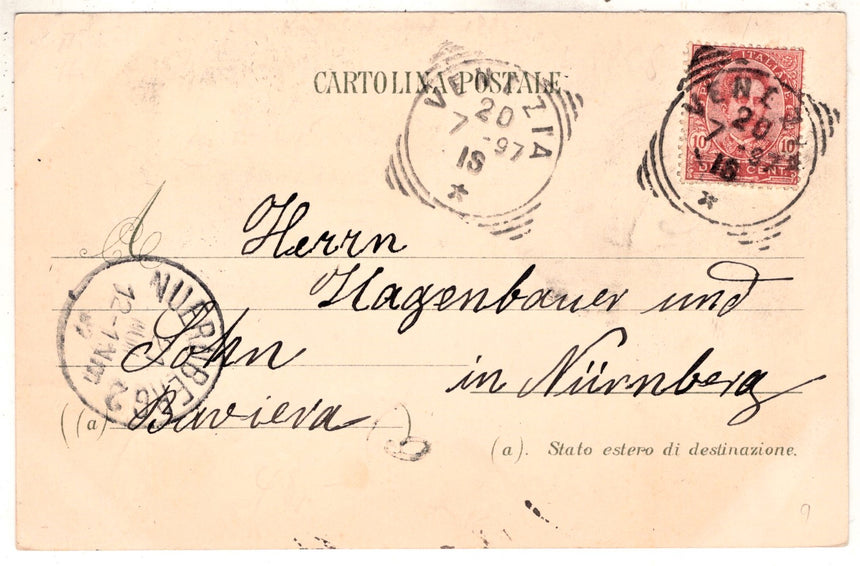 CARTOLINA POSTALE
VENEZIA
20
7 -97
18
*
ITALI
10 10
CENT
VENEZIA
20
7 -97
18
*
Herrn
Hagenbauer und
Sohn
in Nürnberg
(a) Baviera
NUERNBERG 2
12-1 Nm
(a). Stato estero di destinazione.
9